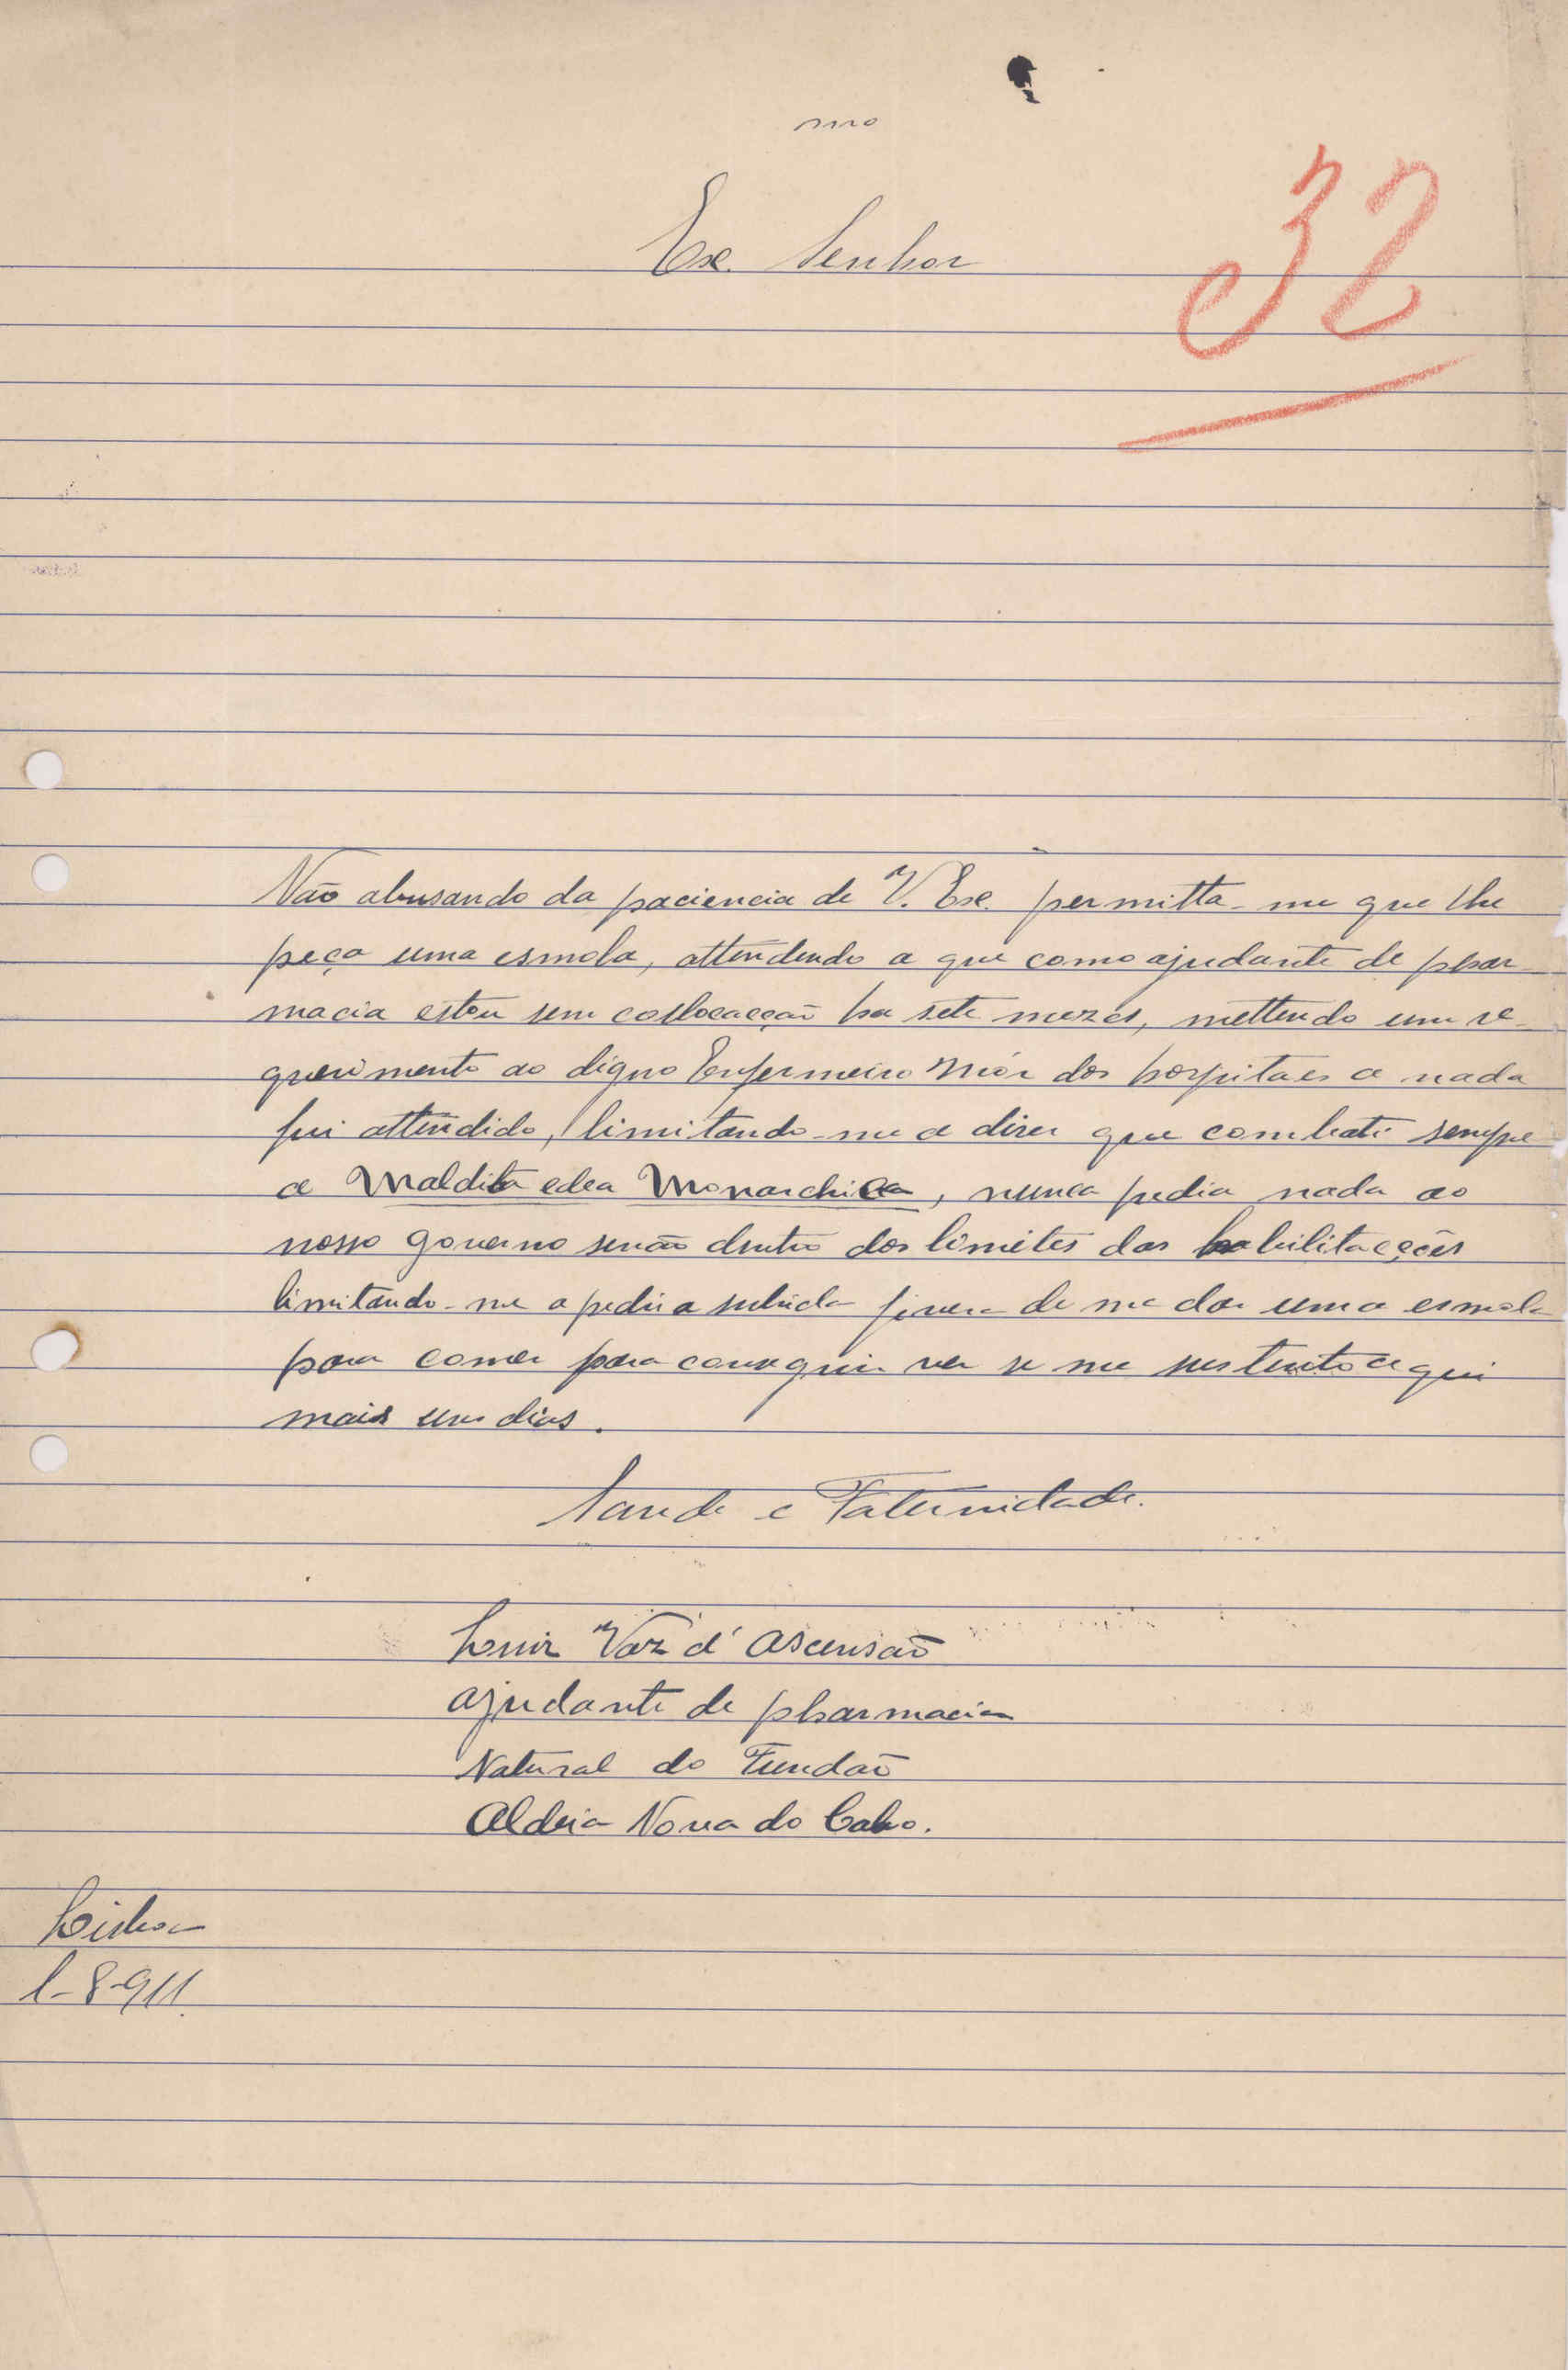 mo
32
Exc. Senhor
Não abusando da paciencia de V. Exc. permitta-me que lhe
peça uma esmola, attendendo a que como ajudante de phar-
macia estou sem collocacção ha sete mezes, mettendo um re-
querimento ao digno Enfermeiro Mór dos hospitaes a nada
fui attendido, limitando-me a dizer que combati sempre
a Maldita edea Monarchica, nunca pedia nada ao
nosso governo senão dentro dos limites das habilitacções
limitando-me a pedir a subida fineza de me dar uma esmola
para comer para conseguir ver se me sustento aqui
mais uns dias.
Saude e Faternidade.
Luiz Vaz d'Ascensão
ajudante de pharmacia
Natural do Fundão
Aldeia Nova do Cabo.
Lisboa
1-8-911.